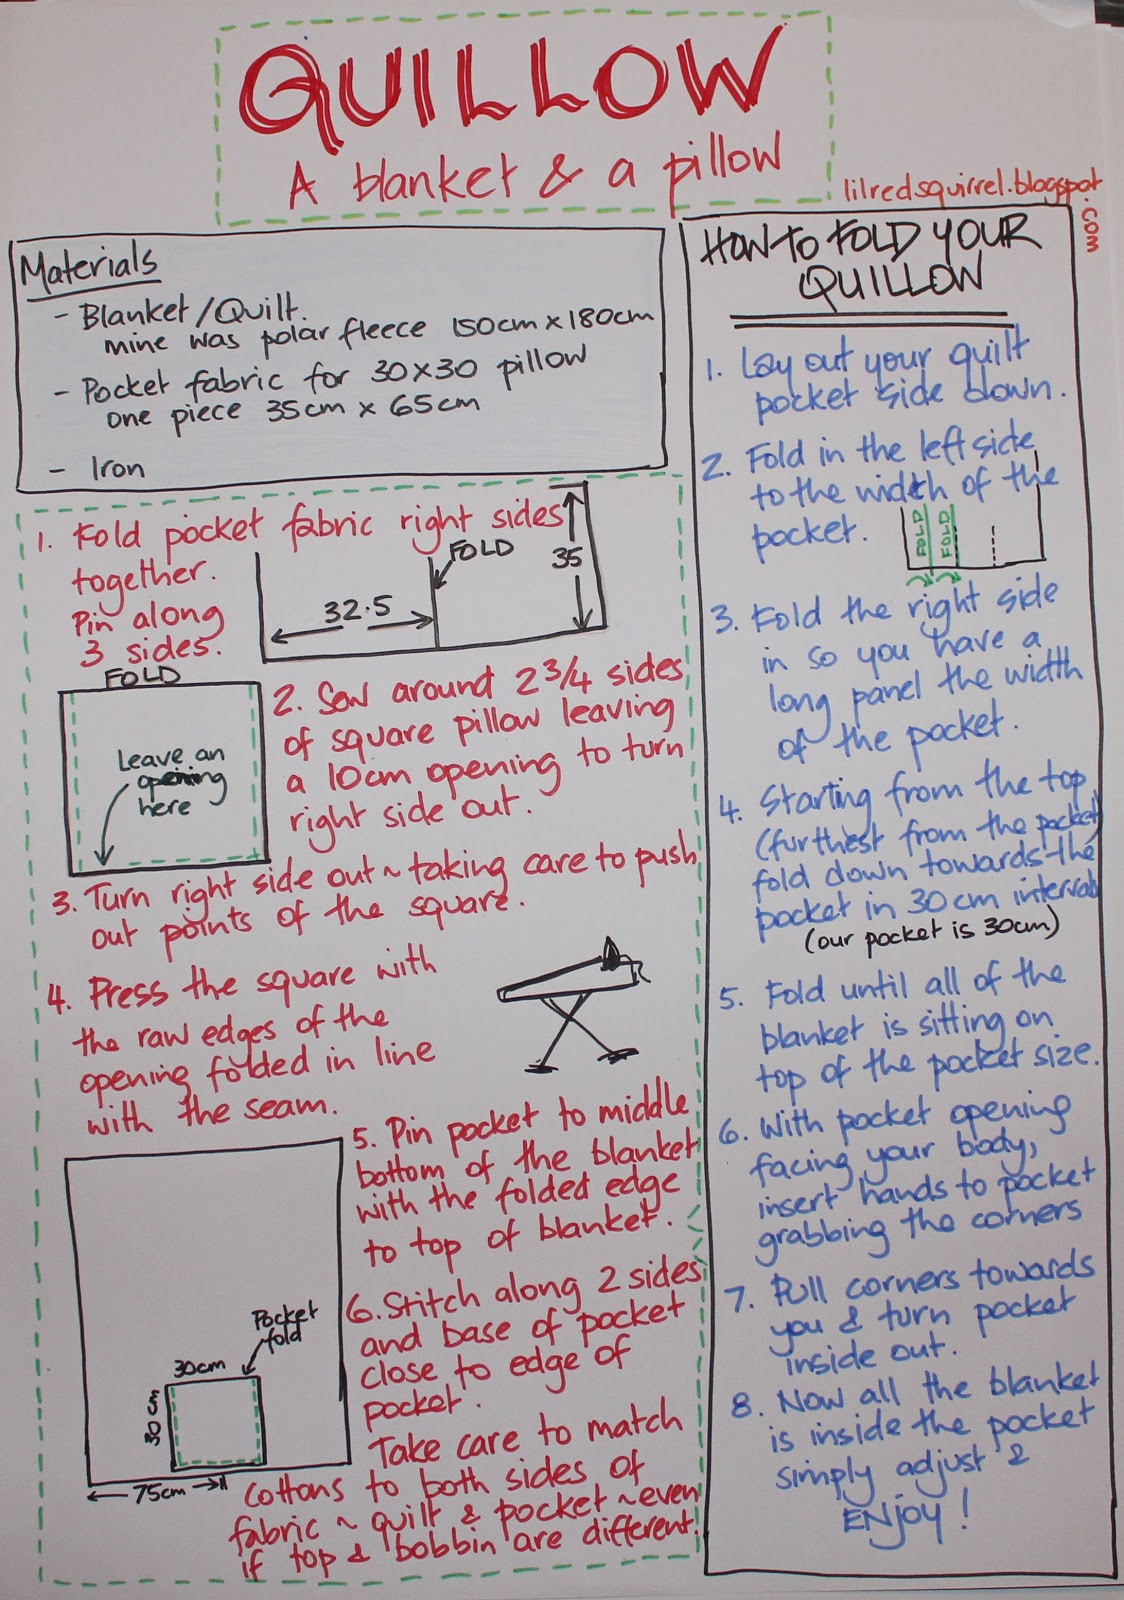 QUILLOW
A blanket & a pillow
lilredsquirrel.blogspot
.com
Materials
- Blanket/Quilt.
mine was polar fleece 150cm x 180cm
- Pocket fabric for 30x30 pillow
one piece 35cm x 65cm
- Iron
1. Fold pocket fabric right sides
together.
Pin along
3 sides.
FOLD
35
32.5
FOLD
Leave an
opening
here
2. Sew around 2 3/4 sides
of square pillow leaving
a 10cm opening to turn
right side out.
3. Turn right side out ~ taking care to push
out points of the square.
4. Press the square with
the raw edges of the
opening folded in line
with the seam.
5. Pin pocket to middle
bottom of the blanket
with the folded edge
to top of blanket.
6. Stitch along 2 sides
and base of pocket
close to edge of
pocket.
Take care to match
cottons to both sides of
fabric ~ quilt & pocket ~ even
if top & bobbin are different!
Pocket
fold
30cm
30cm
75cm
HOW TO FOLD YOUR
QUILLOW
1. Lay out your quilt
pocket side down.
2. Fold in the left side
to the width of the
pocket.
FOLD
FOLD
3. Fold the right side
in so you have a
long panel the width
of the pocket.
4. Starting from the top
(furthest from the pocket)
fold down towards the
pocket in 30cm intervals
(our pocket is 30cm)
5. Fold until all of the
blanket is sitting on
top of the pocket size.
6. With pocket opening
facing your body,
insert hands to pocket
grabbing the corners
7. Pull corners towards
you & turn pocket
inside out.
8. Now all the blanket
is inside the pocket
simply adjust &
ENJOY!